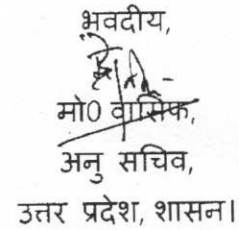 भवदीय,
मो0 वासिफ,
अनु सचिव,
उत्तर प्रदेश, शासन।